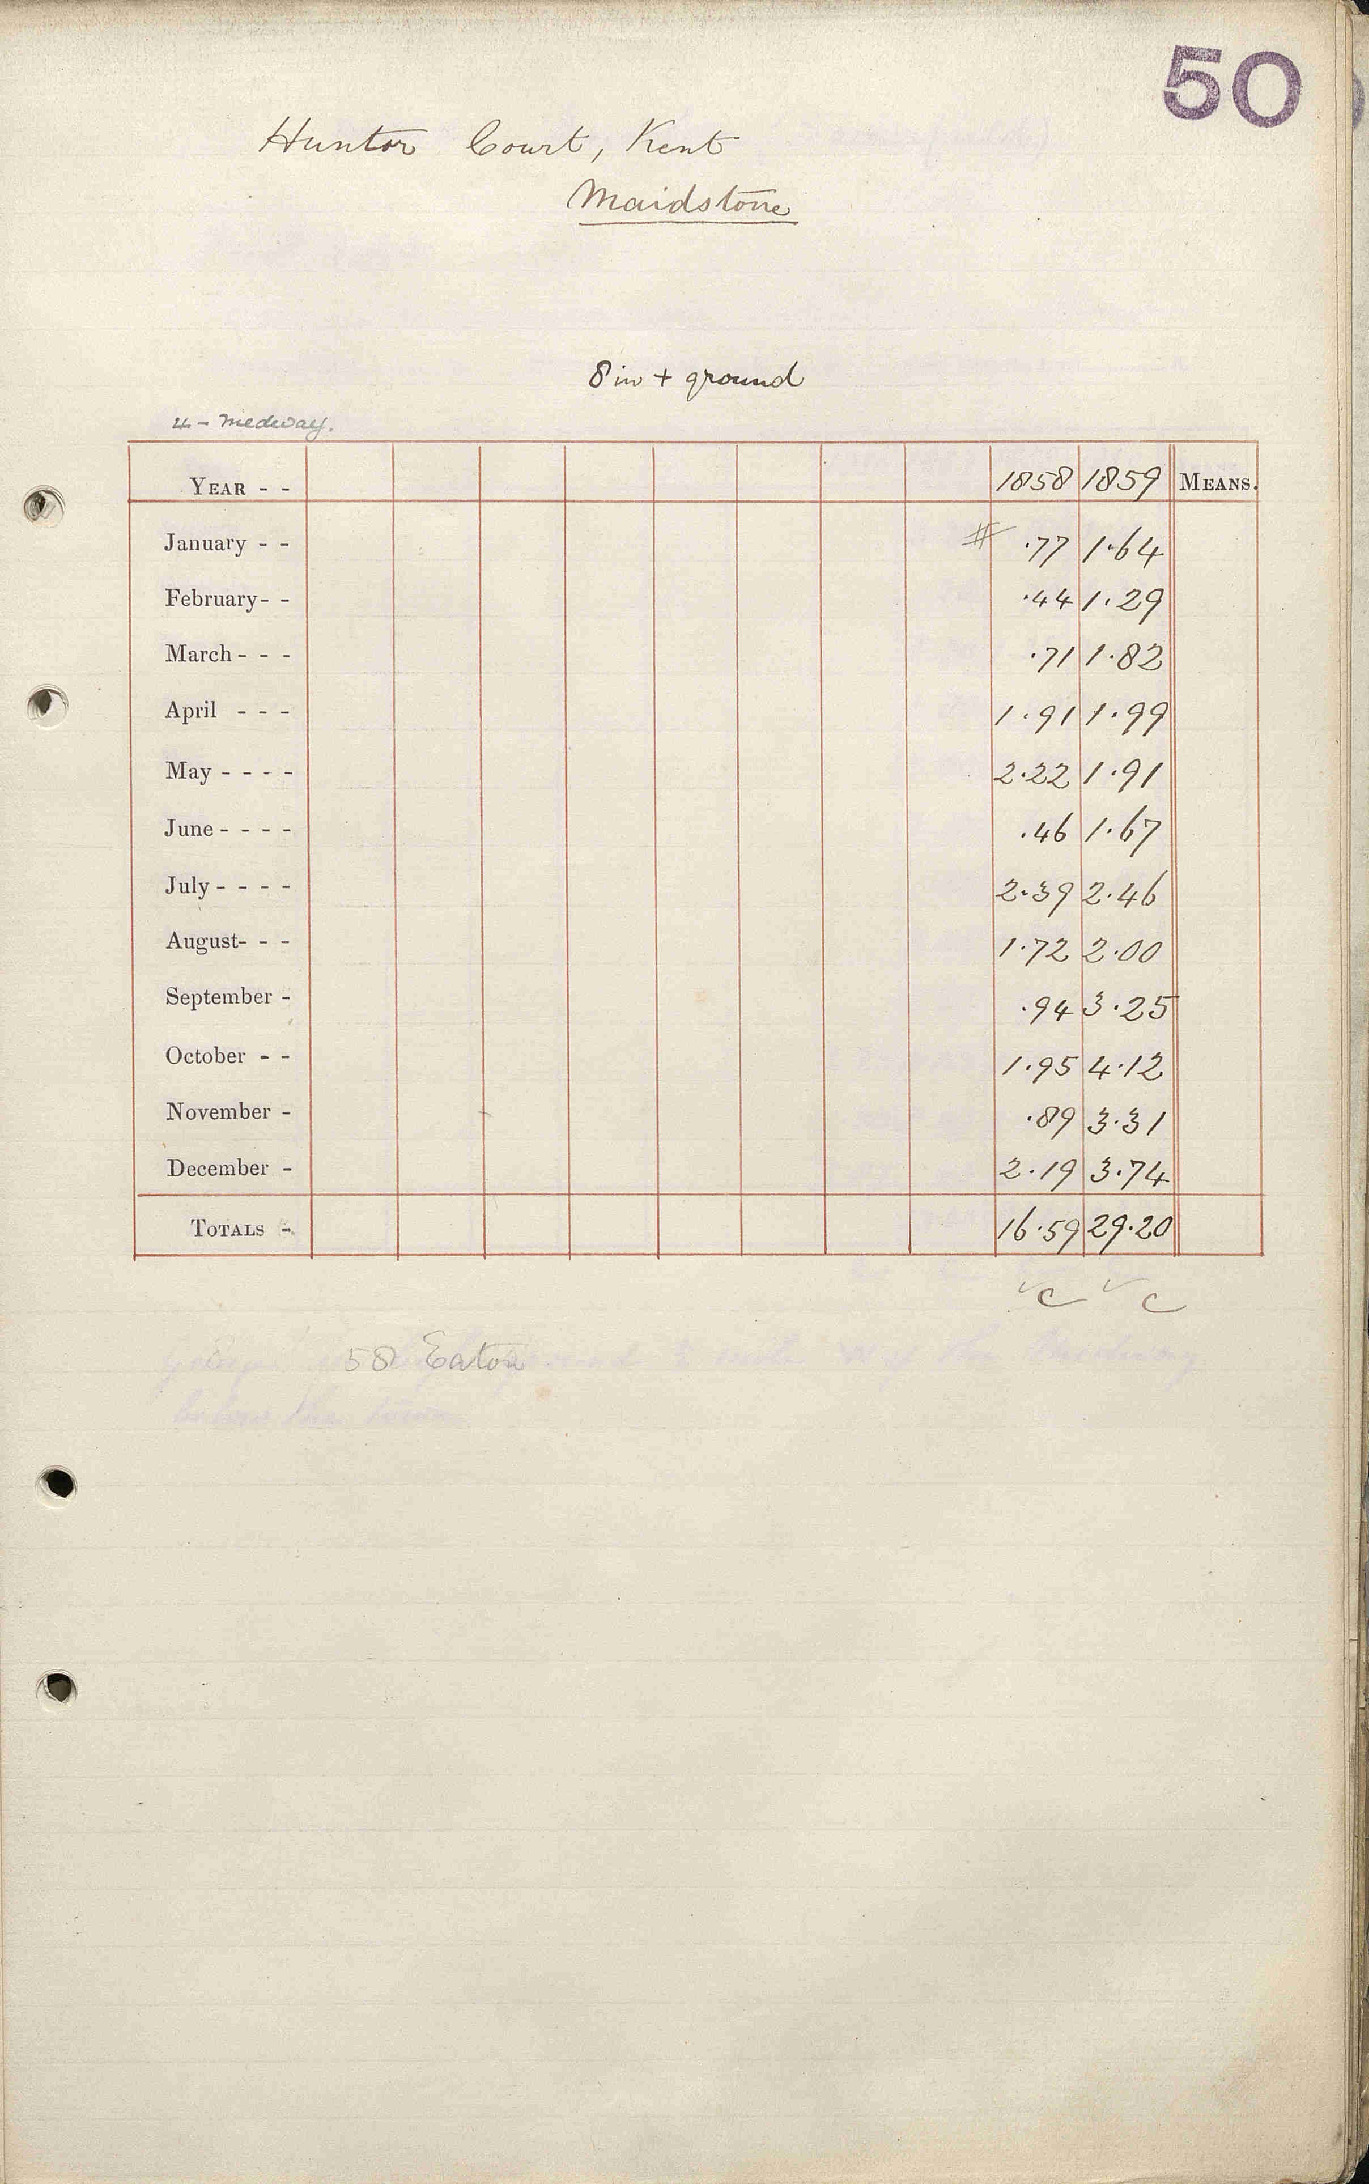 50
Hunton Court, Kent
Maidstone
8 in + ground
4 - Medway.
YEAR - - 1858 1859 MEANS.
January - - # .77 1.64
February - - .44 1.29
March - - - .71 1.82
April - - - 1.91 1.99
May - - - - 2.22 1.91
June - - - - .46 1.67
July - - - - 2.39 2.46
August - - - 1.72 2.00
September - .94 3.25
October - - 1.95 4.12
November - .89 3.31
December - 2.19 3.74
TOTALS - 16.59 29.20
✓ c ✓ c
58 Eaton